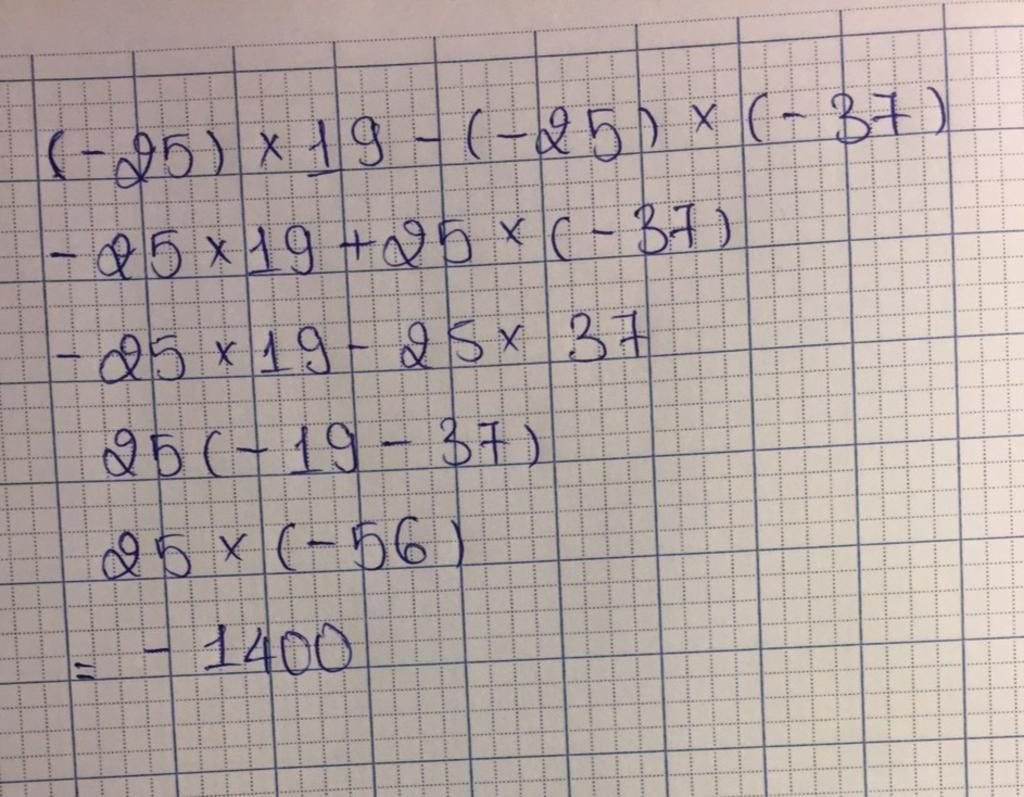 (-25) × 19 - (-25) × (-37)
-25 × 19 + 25 × (-37)
-25 × 19 - 25 × 37
25(-19 - 37)
25 × (-56)
= - 1400